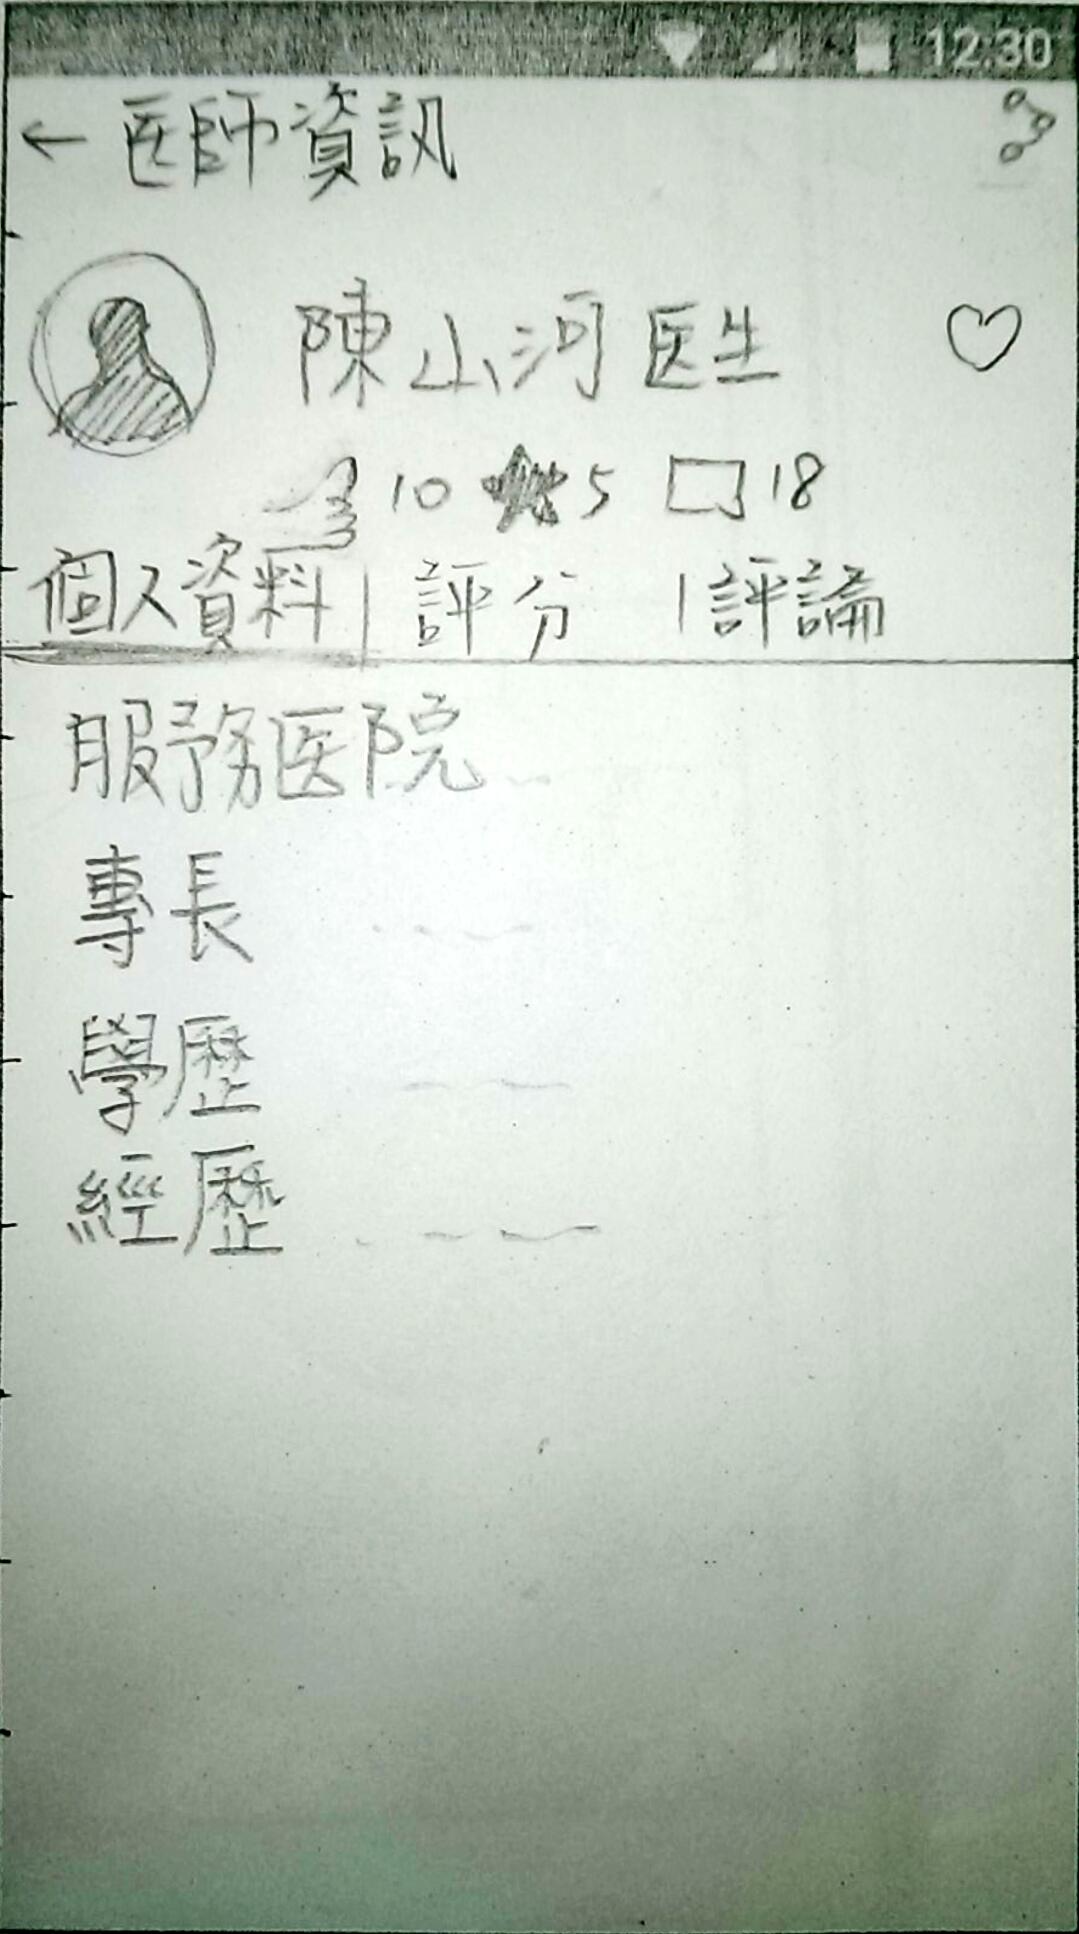 12:30
← 医師資訊
陳山河医生
10 5 18
個人資料 | 評分 | 評論
服務医院
專長
學歷
經歷